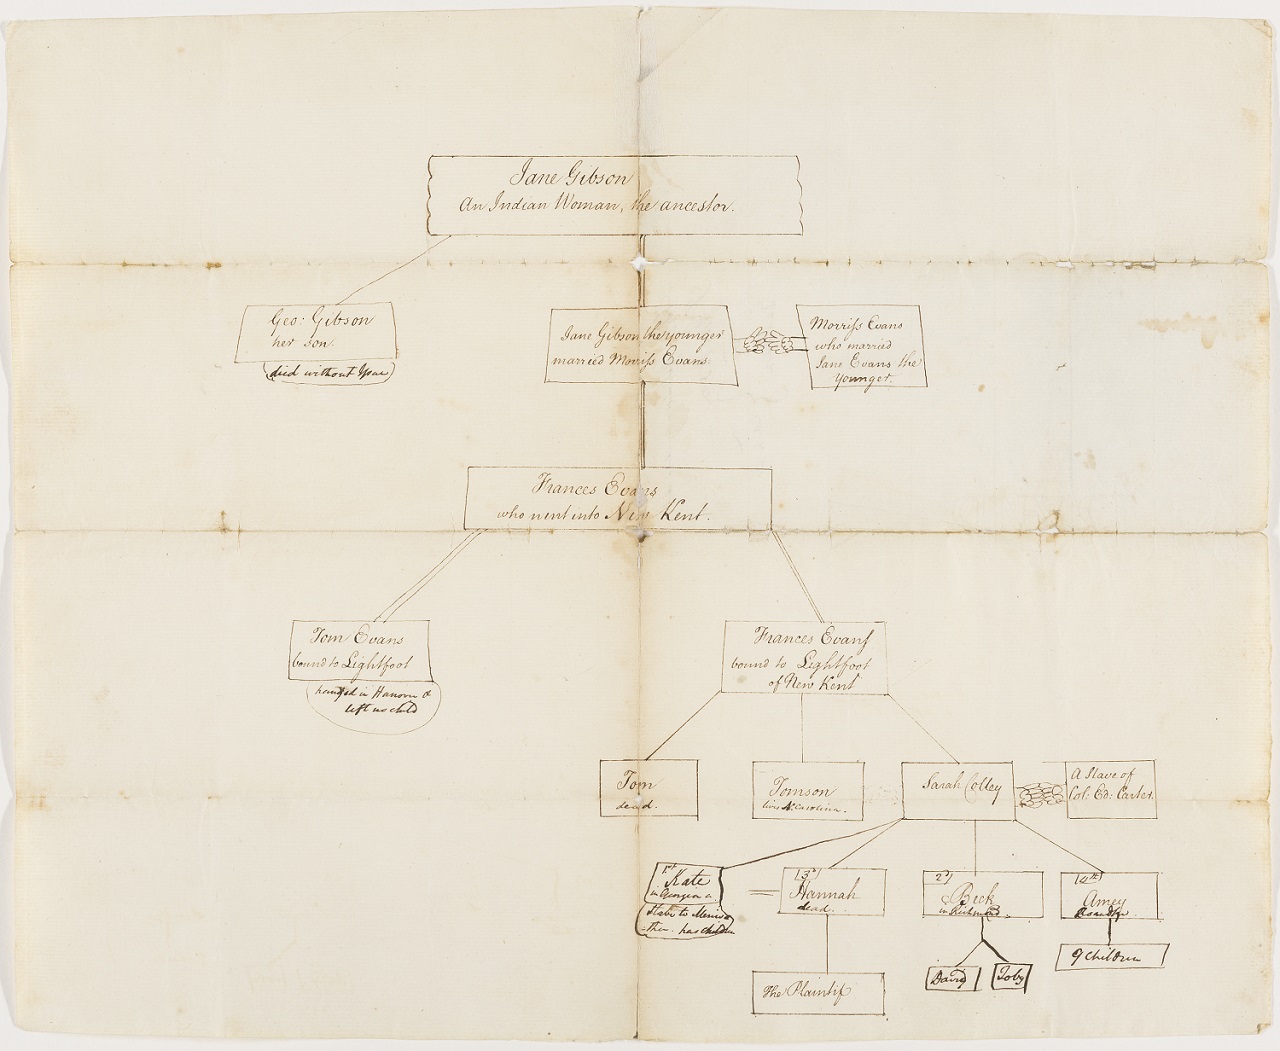 Jane Gibson
An Indian Woman, the ancestor.
Geo: Gibson
her son.
died without Issue
Jane Gibson the younger
married Morriss Evans.
Morriss Evans
who married
Jane Evans the
Younger.
Frances Evans
who went into New Kent.
Tom Evans
bound to Lightfoot
in Hanover &
left no child
Frances Evans
bound to Lightfoot
of New Kent
Tom
dead.
Tomson
Carolina.
Sarah Colley
A Slave of
Col: Ed: Carter.
1st
Kate
in Georgia a
Slave to
has children
3d
Hannah
dead.
2d
Beck
in Richmond.
4th
Amey
The Plaintif
David
Toby
9 Children